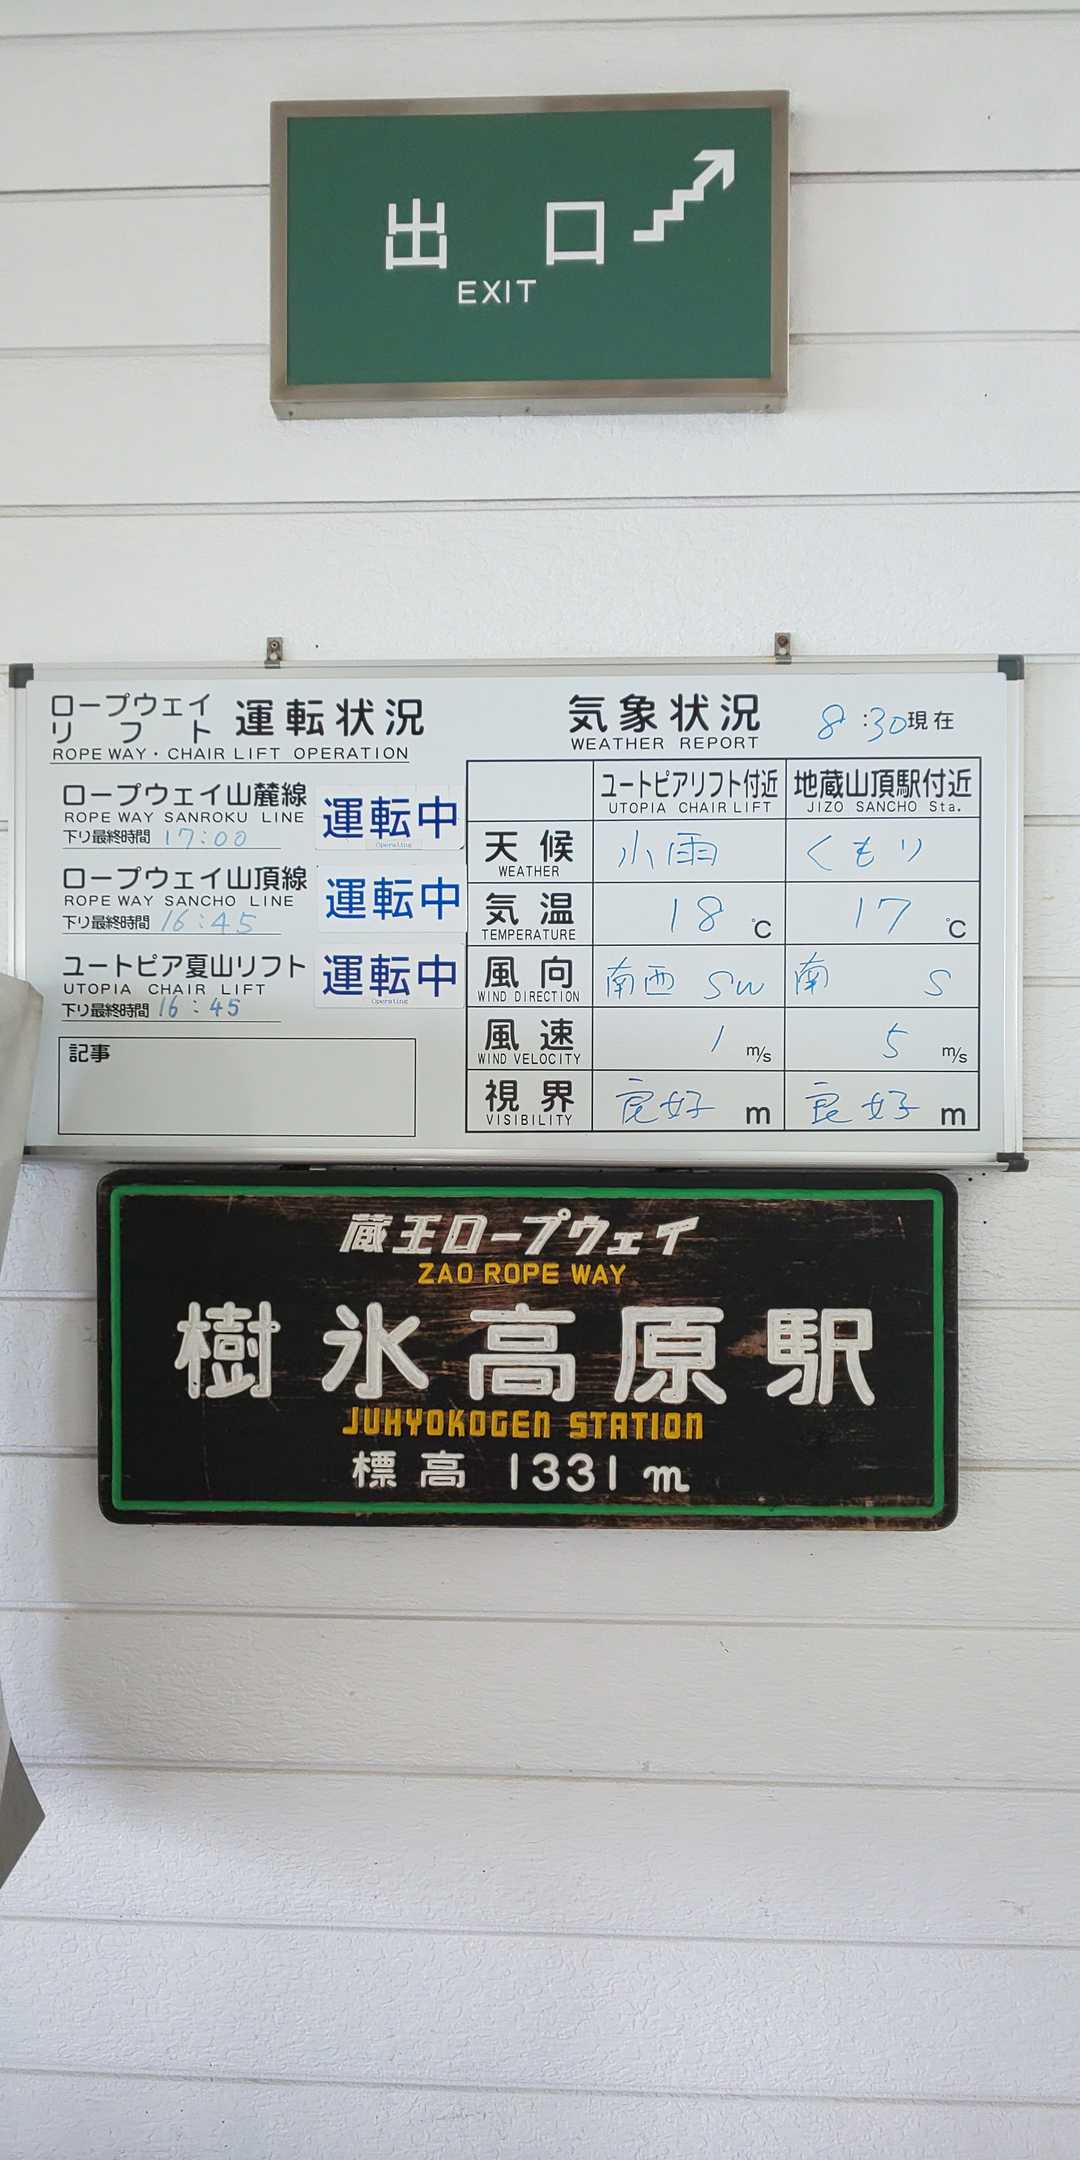 出口
EXIT
ロープウェイ
リフト 運転状況
ROPE WAY・CHAIR LIFT OPERATION
ロープウェイ山麓線
ROPE WAY SANROKU LINE
下り最終時間 17:00
運転中
Operating
ロープウェイ山頂線
ROPE WAY SANCHO LINE
下り最終時間 16:45
運転中
ユートピア夏山リフト
UTOPIA CHAIR LIFT
下り最終時間 16:45
運転中
Operating
記事
気象状況 8:30現在
WEATHER REPORT
ユートピアリフト付近 地蔵山頂駅付近
UTOPIA CHAIR LIFT JIZO SANCHO Sta.
天候 小雨 くもり
WEATHER
気温 18 ℃ 17 ℃
TEMPERATURE
風向 南西 SW 南 S
WIND DIRECTION
風速 1 m/s 5 m/s
WIND VELOCITY
視界 良好 m 良好 m
VISIBILITY
蔵王ロープウェイ
ZAO ROPE WAY
樹氷高原駅
JUHYOKOGEN STATION
標高 1331m